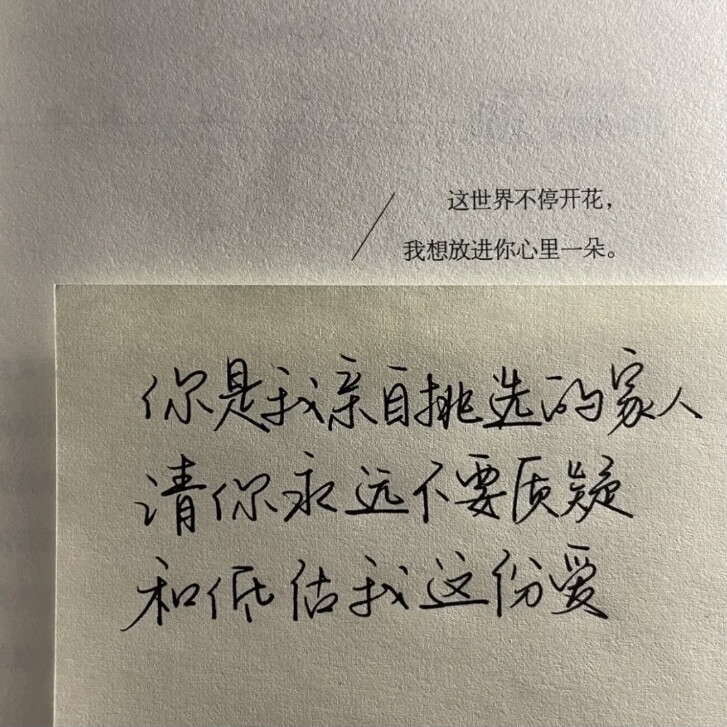 这世界不停开花，
我想放进你心里一朵。
你是我亲自挑选的家人
请你永远不要质疑
和低估我这份爱